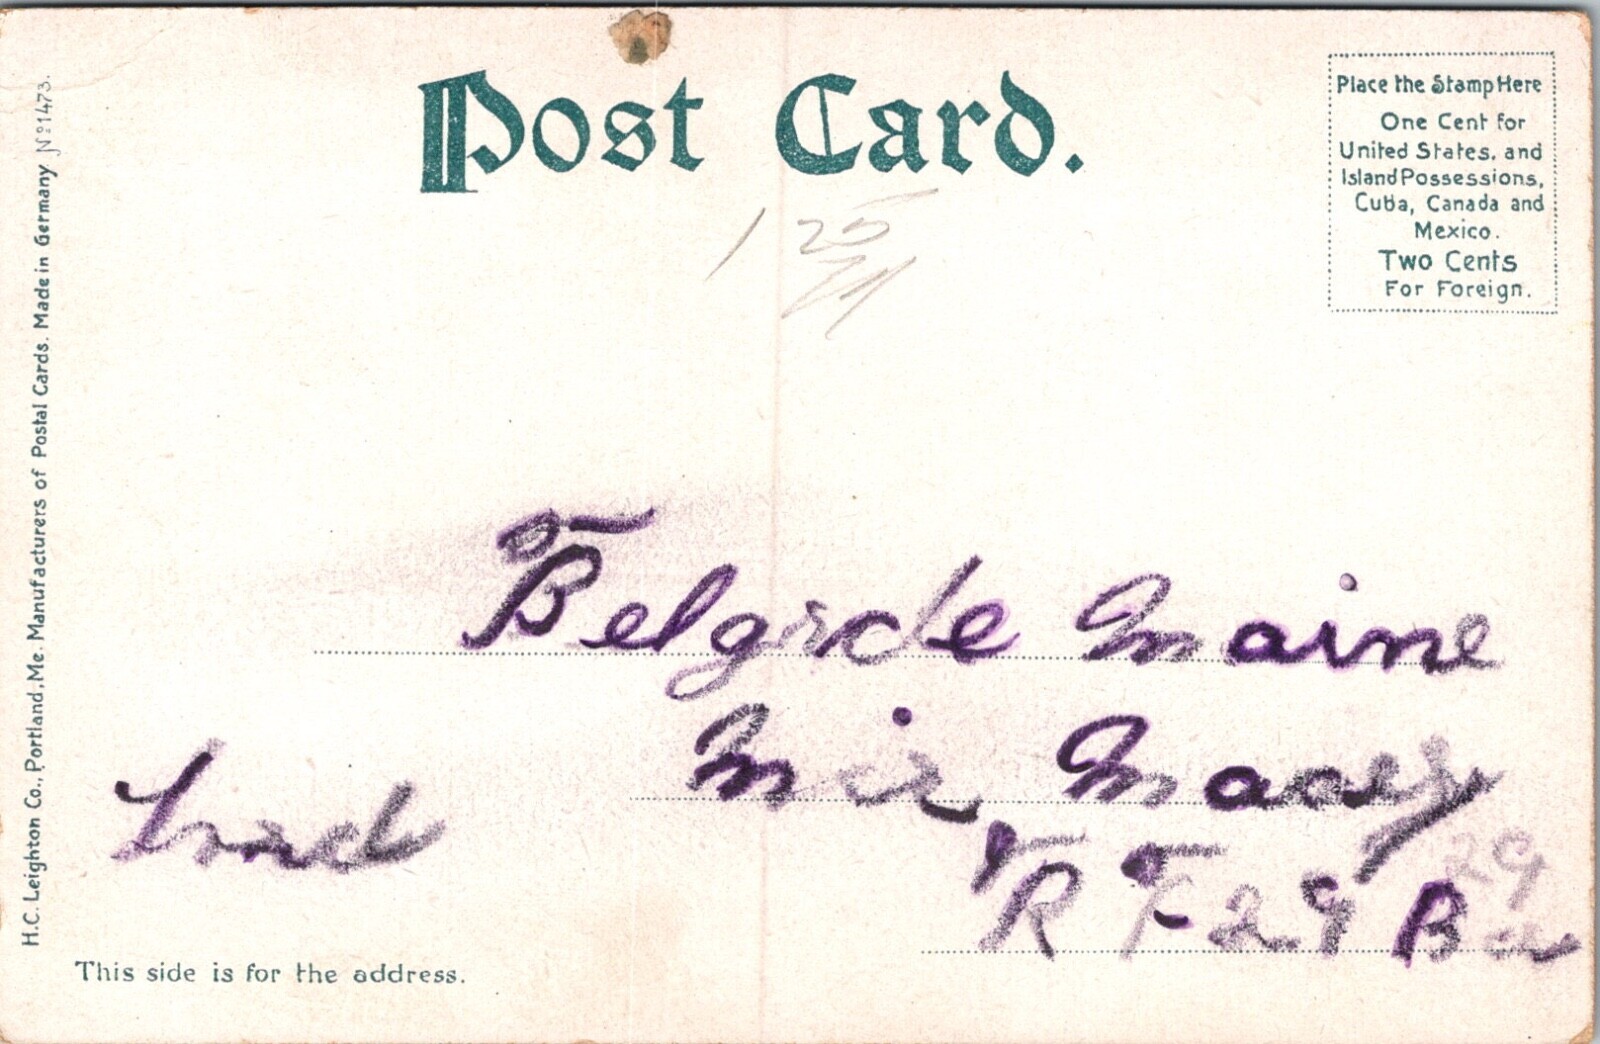 Post Card.
Place the Stamp Here
One Cent for
United States, and
Island Possessions,
Cuba, Canada and
Mexico.
Two Cents
For Foreign.
H.C. Leighton Co., Portland, Me. Manufacturers of Postal Cards. Made in Germany No 1473.
1 25
Belgrde Maine
Macey
29
R F 29 B
This side is for the address.